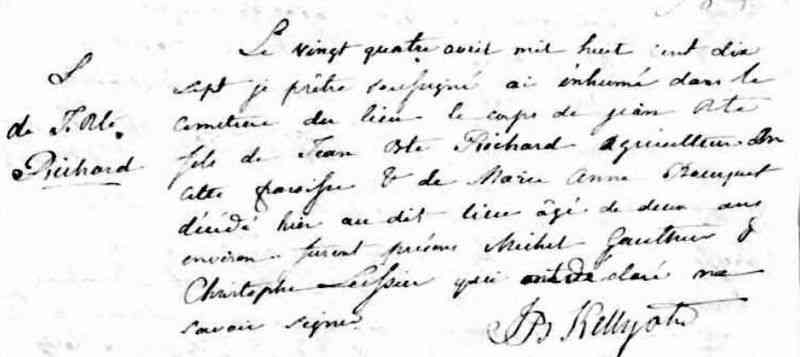 S
de J. Bte
Richard
Le vingt quatre avril mil huit cent dix
sept je prêtre soussigné ai inhumé dans le
cemetiere du lieu le corps de jean Bte
fils de Jean Bte Richard agriculteur en
cette paroisse & de Marie Anne
décédé hier au dit lieu âgé de deux ans
environ. furent présens Michel Gauthier &
Christophe Lussier qui ont declaré ne
savoir signer
JB Kelly ptre